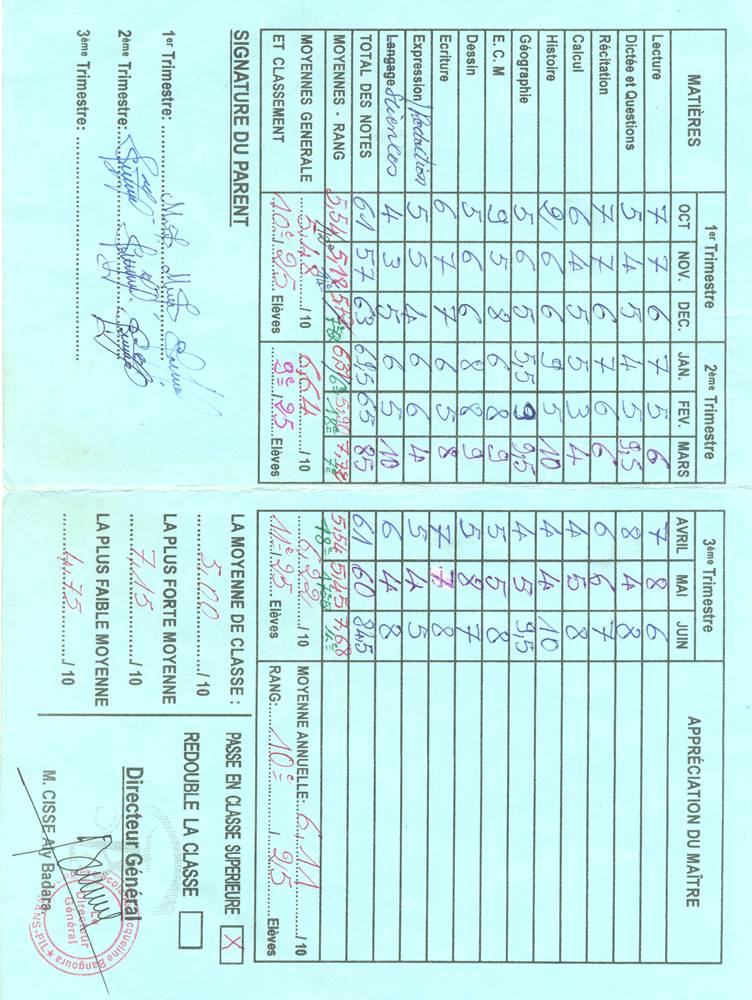 MATIÈRES 1er Trimestre 2ème Trimestre 3ème Trimestre APPRÉCIATION DU MAÎTRE
OCT NOV. DEC. JAN. FEV. MARS AVRIL MAI JUIN
Lecture 7 7 6 7 5 6 7 8 6
Dictée et Questions 5 4 5 4 5 9,5 8 4 8
Récitation 7 7 6 7 6 6 6 6 7
Calcul 6 4 5 5 3 4 4 5 8
Histoire 6 6 9 5 10 4 4 10
Géographie 5 6 5 5,5 9 9,5 4 5 9,5
E.C.M 9 5 8 6 8 9 5 5 8
Dessin 5 6 6 8 8 9 5 8 7
Ecriture 6 7 7 6 5 8 7 7 8
Expression/Rédaction 5 5 4 6 6 4 5 4 5
Langage Sciences 4 3 5 6 5 10 6 4 8
TOTAL DES NOTES 61 57 63 69,5 65 85 61 60 84,5
MOYENNES - RANG 5,54 5,18 6,31 5,90 5,54 5,45 7,68
MOYENNES GENERALE 5,48 / 10 6,64 / 10 6,22 / 10 MOYENNE ANNUELLE: 6,11 / 10
ET CLASSEMENT 10e / 25 Elèves 9e / 25 Elèves 11e / 25 Elèves RANG: 10e / 25 Elèves
SIGNATURE DU PARENT
1er Trimestre:
2ème Trimestre:
3ème Trimestre:
LA MOYENNE DE CLASSE :
5,00 / 10
LA PLUS FORTE MOYENNE
7,15 / 10
LA PLUS FAIBLE MOYENNE
4,75 / 10
PASSE EN CLASSE SUPERIEURE X
REDOUBLE LA CLASSE
Directeur Général
M. CISSE Aly Badara
Jacqueline Bangoura
Le Directeur Général